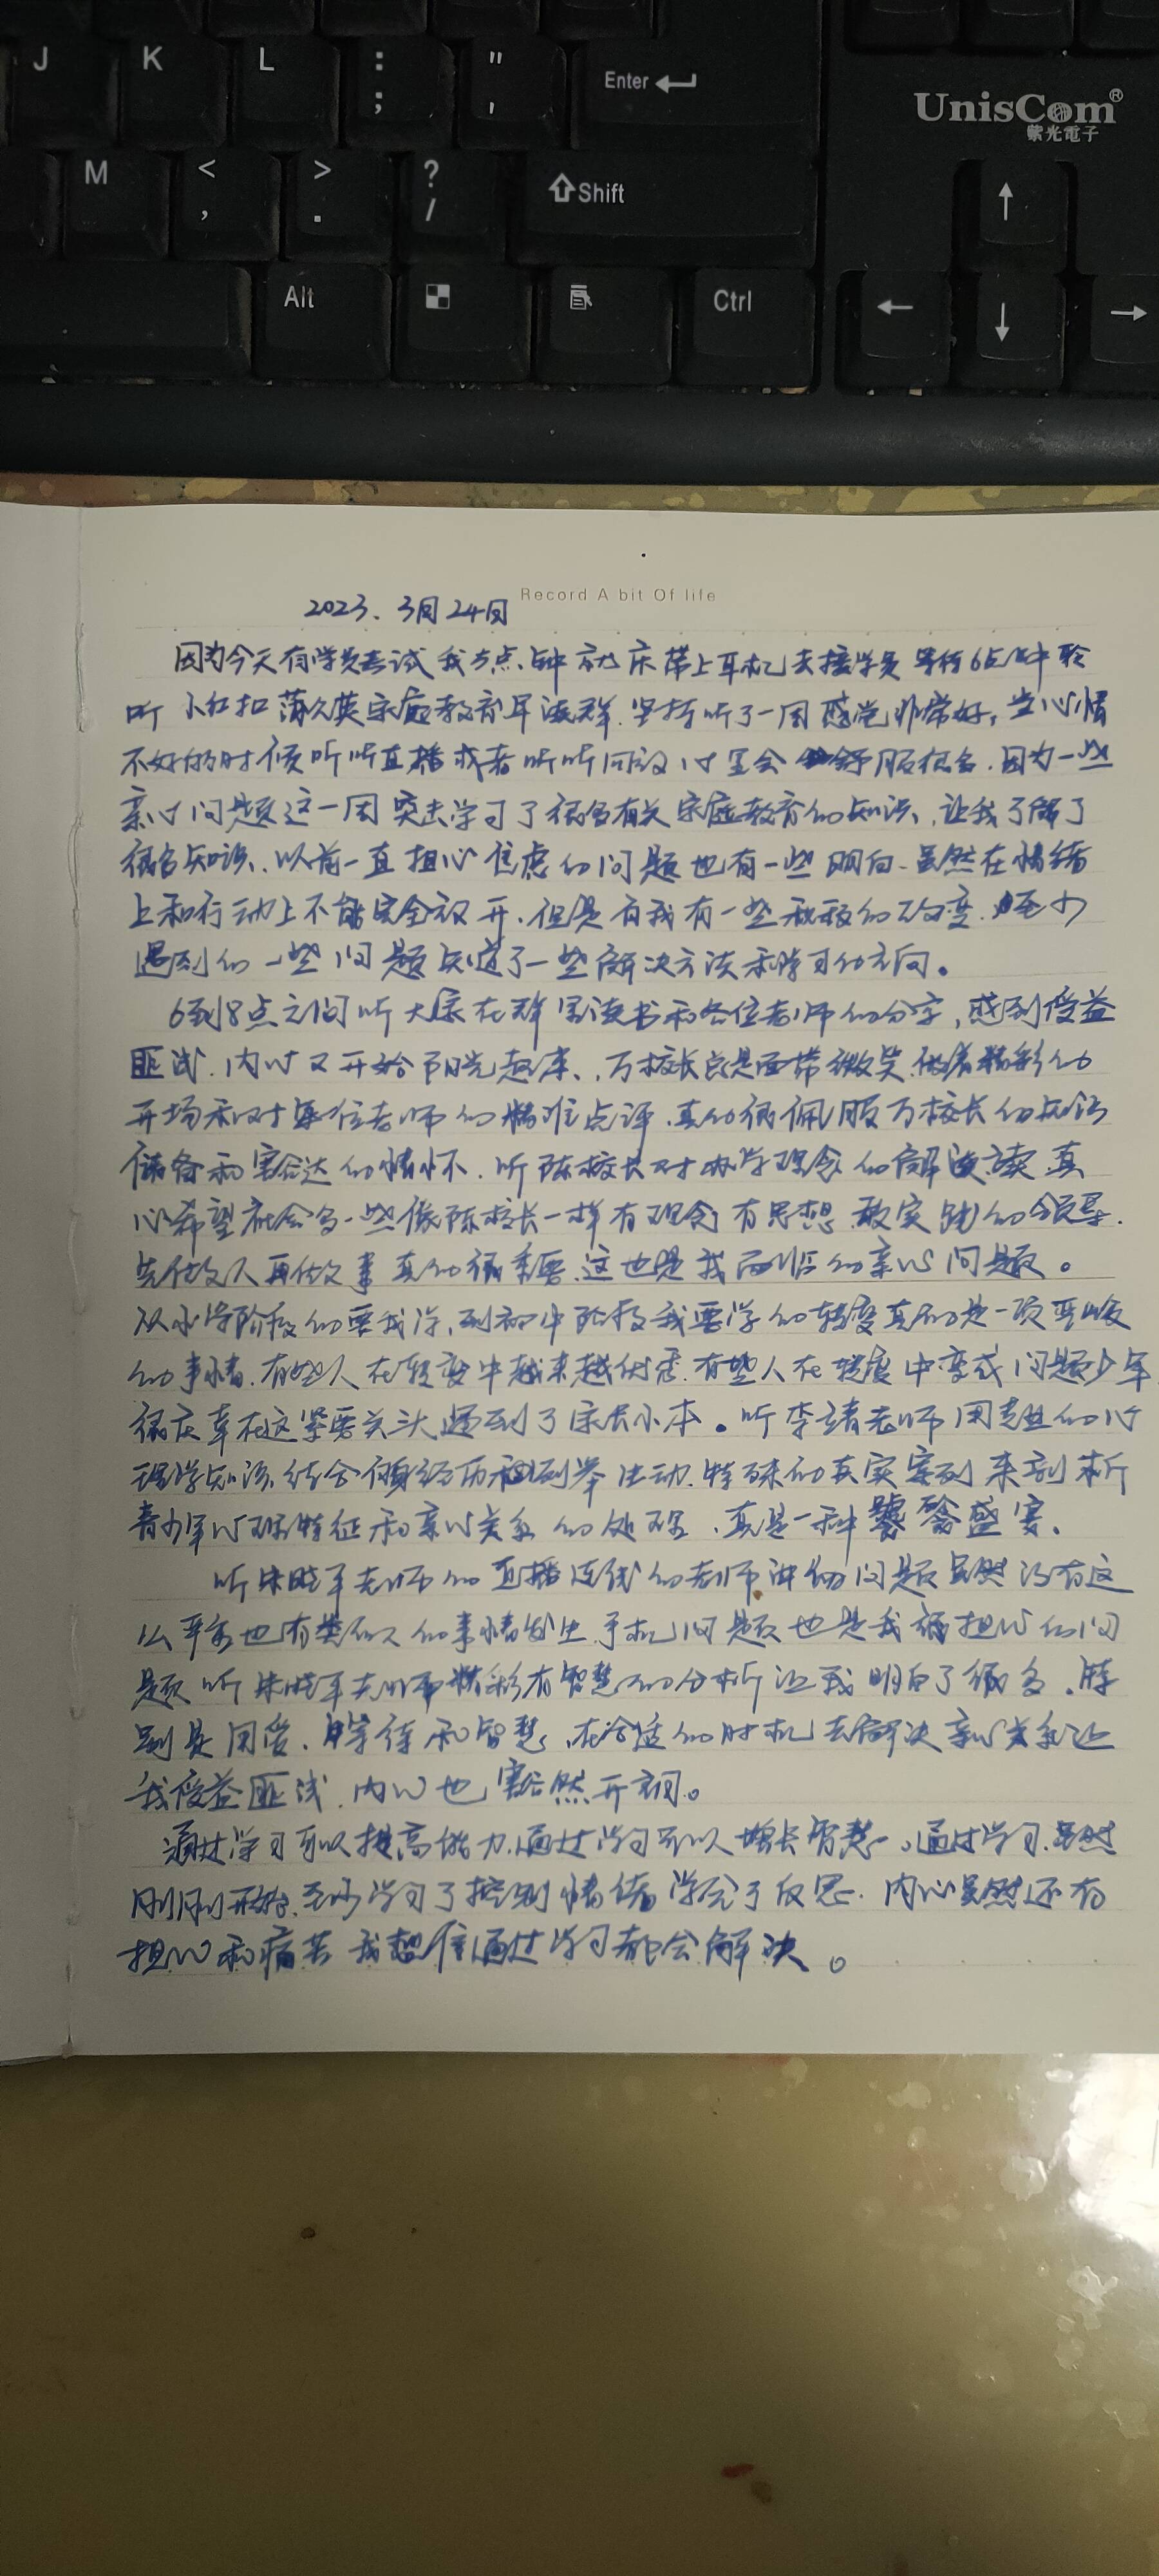 J K L : ; " ' Enter
UnisCom®
紫光電子
M < , > . ? / Shift
Alt Ctrl
Record A bit Of life
2023、3月24日
因为今天有学员考试我5点钟就床带上耳机去接学员等待6点钟聆
听小红扣蒲久英家庭教育早读群.坚持听了一周感觉非常好,当心情
不好的时候听听直播或者听听回放心里会舒服很多.因为一些
亲心问题这一周突击学习了很多有关家庭教育的知识,让我了解了
很多知识、以前一直担心焦虑的问题也有一些明白、虽然在情绪
上和行动上不能完全放开.但是自我有一些积极的改变.至少
遇到的一些问题知道了一些解决方法和学习的方向。
6到8点之间听大家在群里读书和各位老师的分享,感到受益
匪浅.内心又开始阳光起来、万校长总是面带微笑 精彩的
开场和对每位老师的精准点评.真的很佩服万校长的知识
储备和豁达的情怀.听陈校长对办学理念的解读 真
心希望社会多一些像陈校长一样有观念有思想 敢实践的领导.
先做人再做事真的很重要、这也是我面临的亲心问题。
从小学阶段的要我学,到初中阶段我要学的转变真的是一项严峻
的事情.有些人在转变中越来越优秀.有些人在转变中变成问题少年
很庆幸在这紧要关头遇到了家长小本。听李靖老师用专业的心
理学知识.结合 经历和列举生动.特殊的真实案例来剖析
青少年心理特征和亲心关系的处理、真是一种饕餮盛宴.
听朱晓平老师的直播连线的老师讲的问题虽然没有这
么严重也有类似的事情发生手机问题也是我很担心的问
题听朱晓平老师精彩有智慧的分析让我明白了很多.特
别是用爱.等待和智慧、在合适的时机去解决亲心关系让
我受益匪浅.内心也豁然开朗。
通过学习可以提高能力.通过学习可以增长智慧。通过学习.虽然
刚刚开始.至少学习了控制情绪学会了反思.内心虽然还有
担心和痛苦我想信通过学习都会解决。